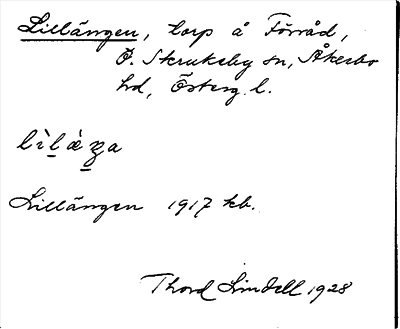 Lillängen, torp å Förråd,
Ö. Skrukeby sn, Åkerbo
hd, Österg. l.
lìlæ̀ŋa
Lillängen 1917 kb.
Thord Lindell 1928